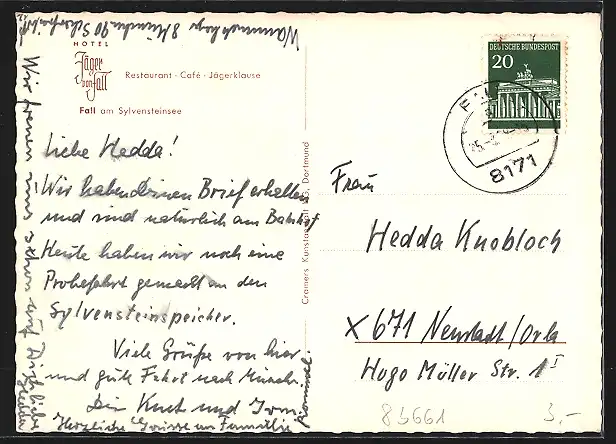 HOTEL
Jäger
von Fall
Restaurant · Café · Jägerklause
Fall am Sylvensteinsee
Liebe Hedda!
Wir haben Deinen Brief erhalten
und sind natürlich am Bahnhof
Heute haben wir noch eine
Probefahrt gemacht an den
Sylvensteinspeicher.
Viele Grüße von hier
und gute Fahrt nach Münch.
Dein Knut und
Herzliche Grüsse an Familie
Wir freuen uns schon auf Dich
8 München 90
Cramers Kunstanstalt KG, Dortmund
DEUTSCHE BUNDESPOST
20
8171
Frau
Hedda Knobloch
X 671 Neustadt/Orla
Hugo Müller Str. 1 I
83661
3,-